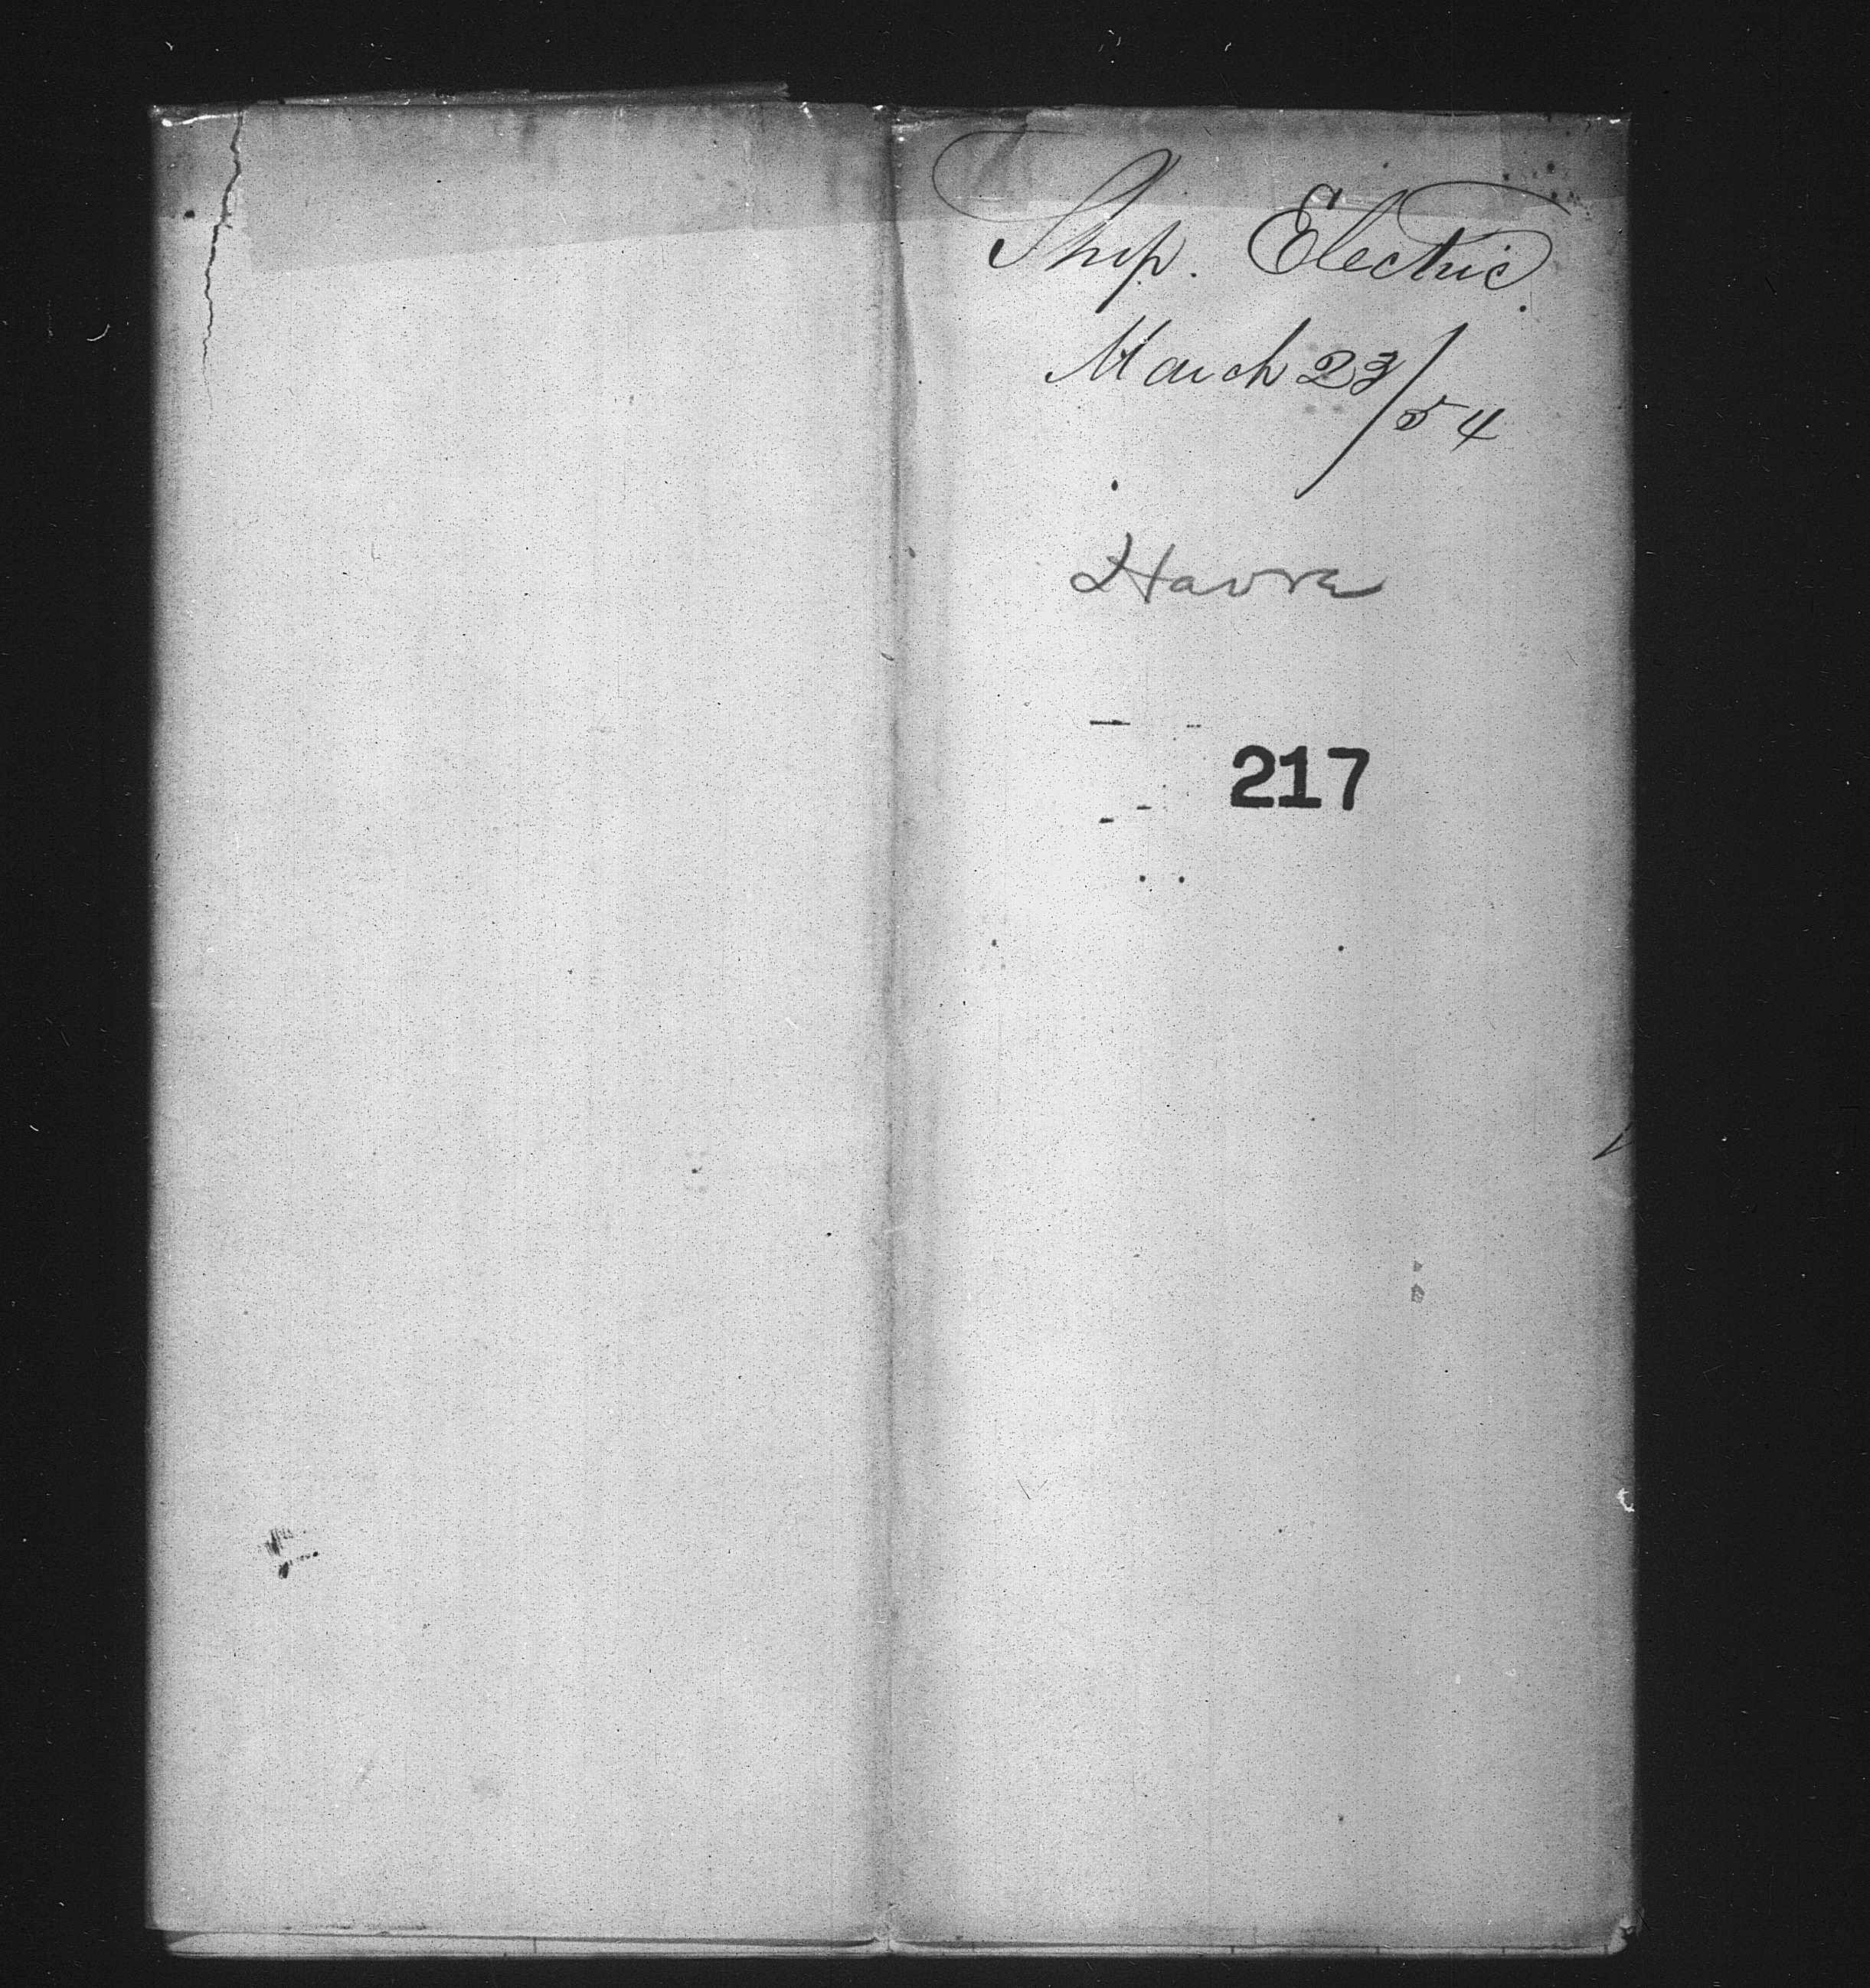 Ship. Electric.
March 23/54
Havre
217